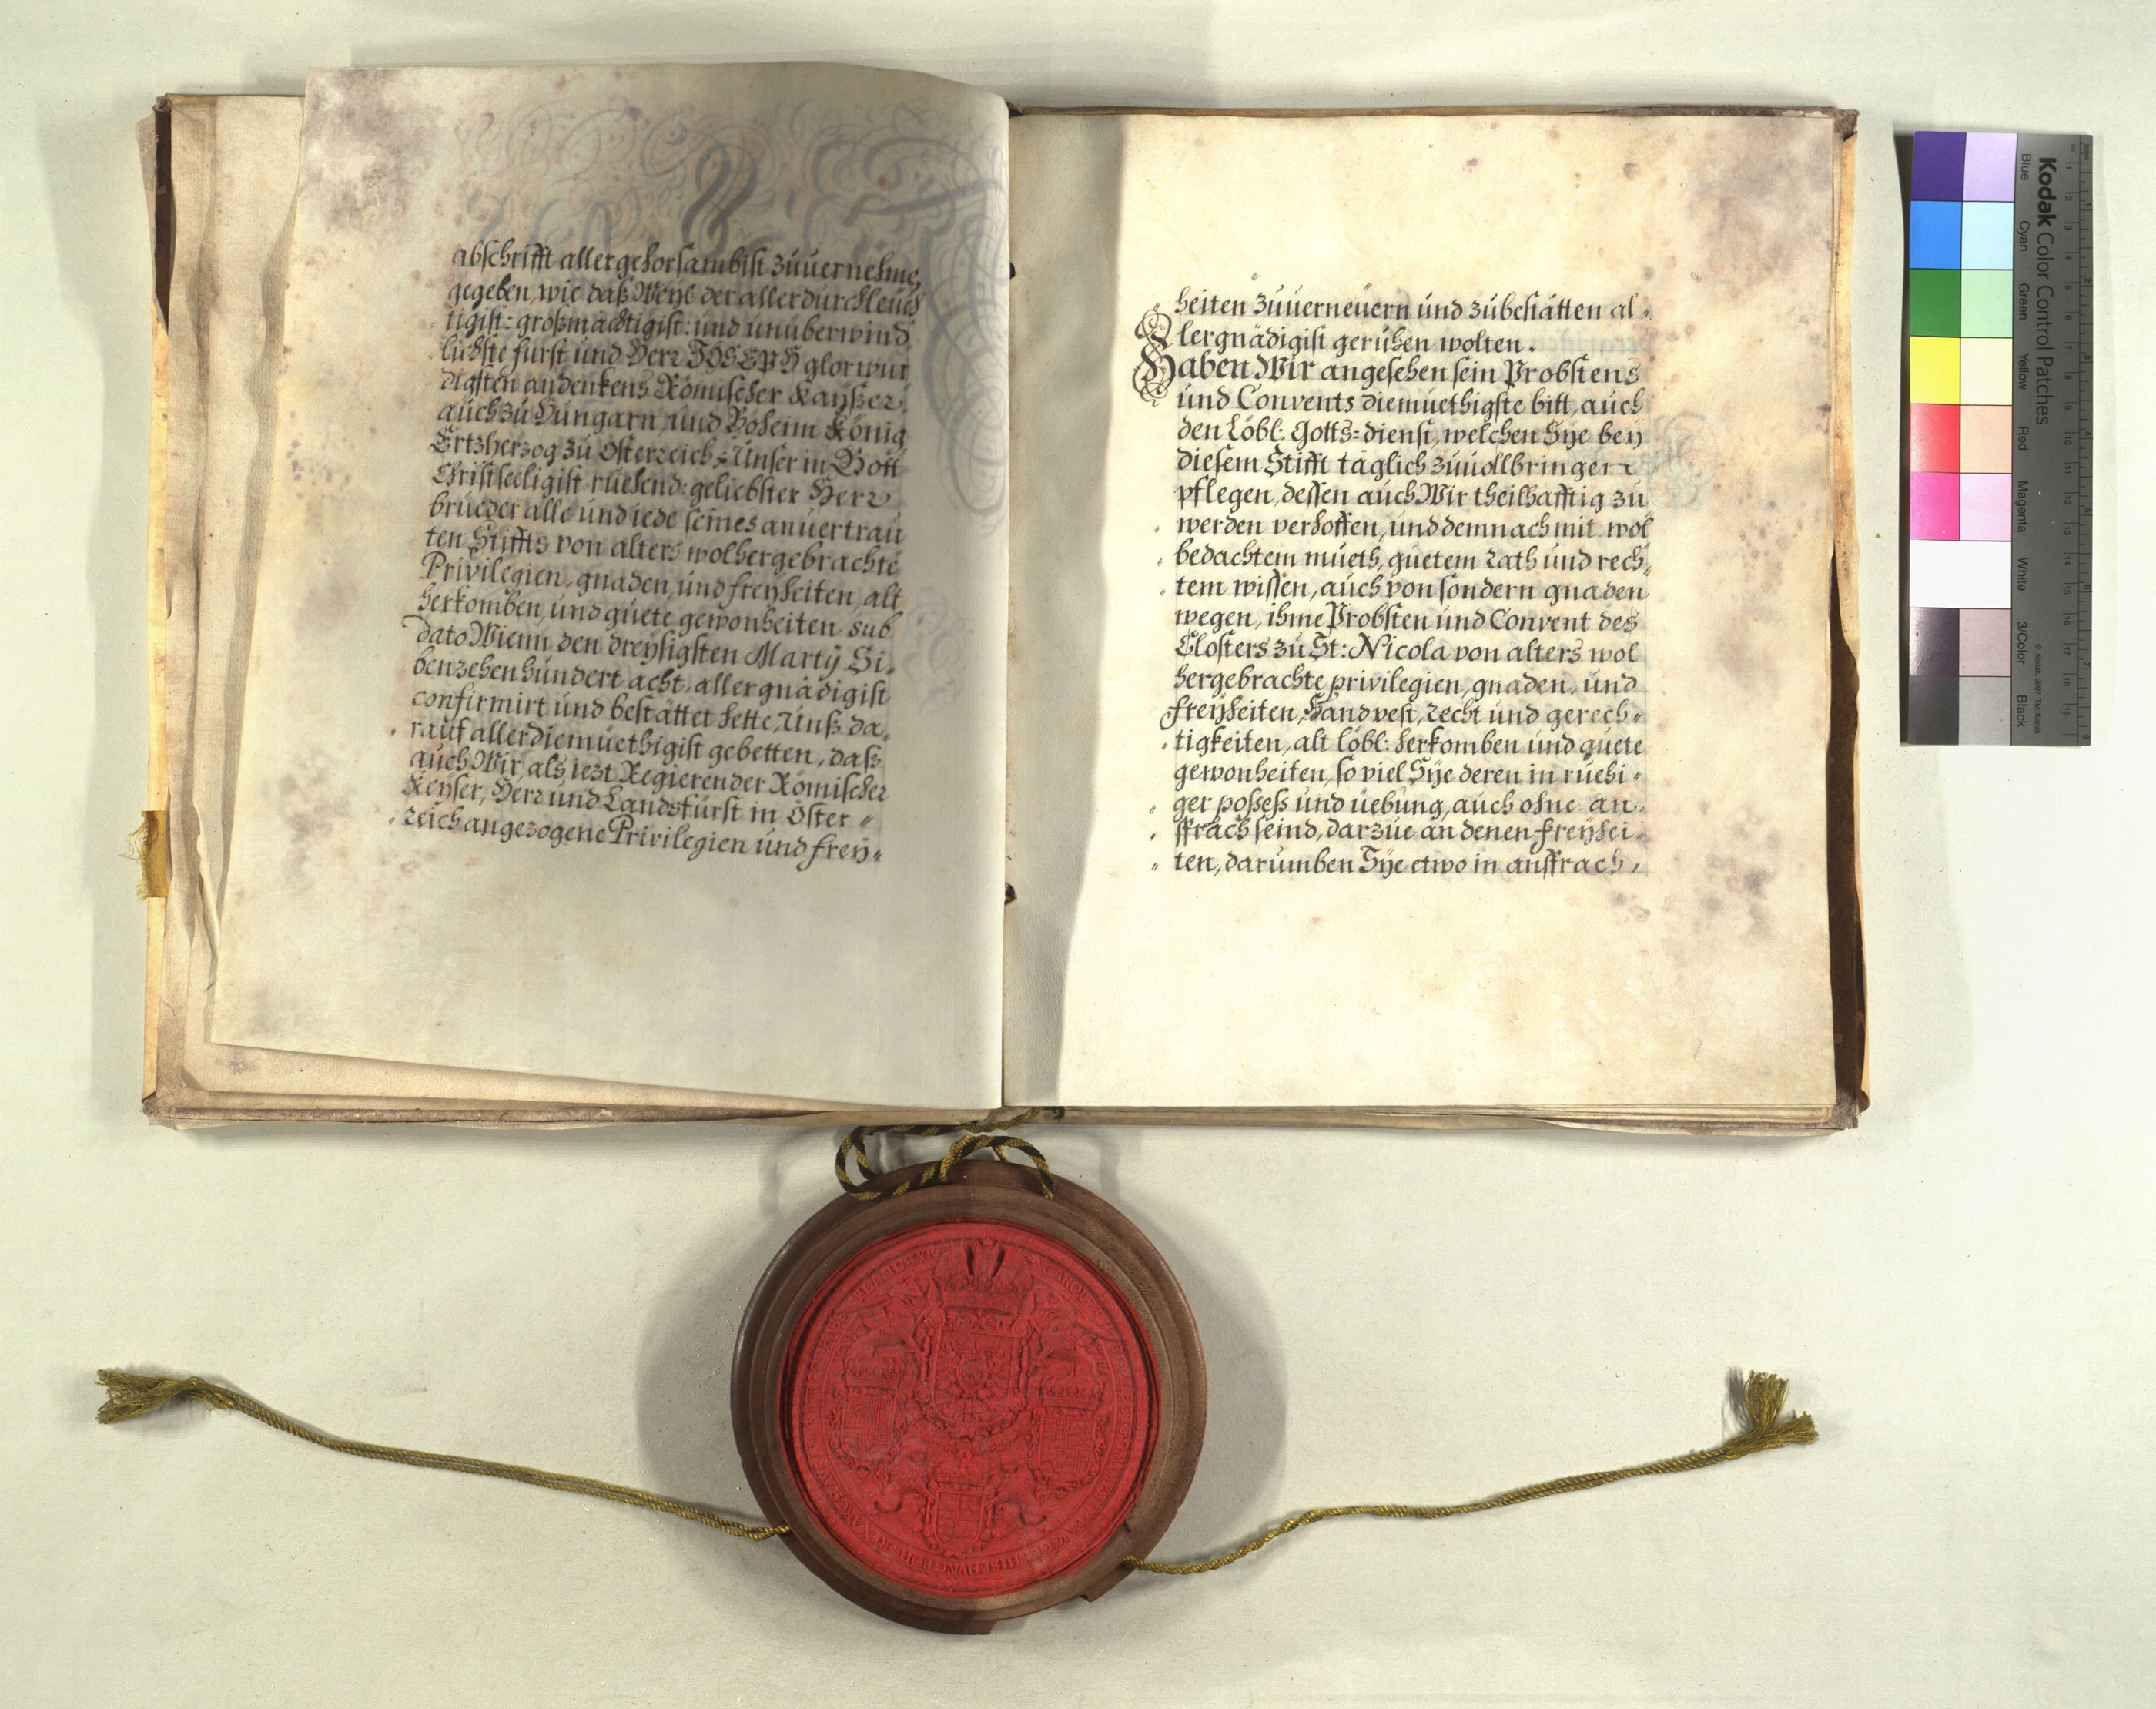 abschrifft allergehorsambist zuuernehme
gegeben, wie daß Weyl: der allerdurchleuch
tigist: großmächtigist: und unüberwind
lichste fürst und Herr JOSEPH glorwür
digsten andenkens Römischer Kayßer,
auch zu Hungarn, und Böheim König
Ertzherzog zu Österreich, Unser in Gott
Christseeligist ruehend: geliebster Herr
brueder alle und iede seines anuertrau
ten Stiffts von alters wolhergebrachte
Privilegien, gnaden, und freyheiten, alt
herkomben, und guete gewonheiten sub
dato Wienn den dreysigsten Martij Si,
benzehenhundert acht, allergnädigist
confirmirt und bestättet hette, Unß da,
rauf allerdiemüethigist gebetten, daß
auch Wir, als iezt Regierender Römischer
Keyser, Herr und Landsfürst in Öster „
„ reich angezogene Privilegien und frey„
„ heiten zuuerneuern und zubestätten al„
lergnädigist geruhen wolten.
Haben Wir angesehen sein Probstens
und Convents diemüethigste bitt, auch
den Löbl: Gotts=dienst, welchen Sye bey
diesem Stifft täglich zuuollbringen
pflegen, dessen auch Wir theilhafftig zu
werden verhoffen, und demnach mit wol
„ bedachtem mueth, guetem rath und rech„
„ tem wissen, auch von sondern gnaden
wegen, ihme Probsten und Convent des
Closters zu St: Nicola von alters wol
hergebrachte privilegien, gnaden, und
freyheiten, Handvest, recht und gerech„
„ tigkeiten, alt löbl: herkomben und guete
gewonheiten, so viel Sye deren in ruebi„
„ ger possess und üebung, auch ohne an„
„ sprach seind, darzue an denen freyhei„
„ ten, darumben Sye etwo in ansprach„
Kodak Color Control Patches
© Kodak, 2007 TM: Kodak
Blue Cyan Green Yellow Red Magenta White 3/Color Black